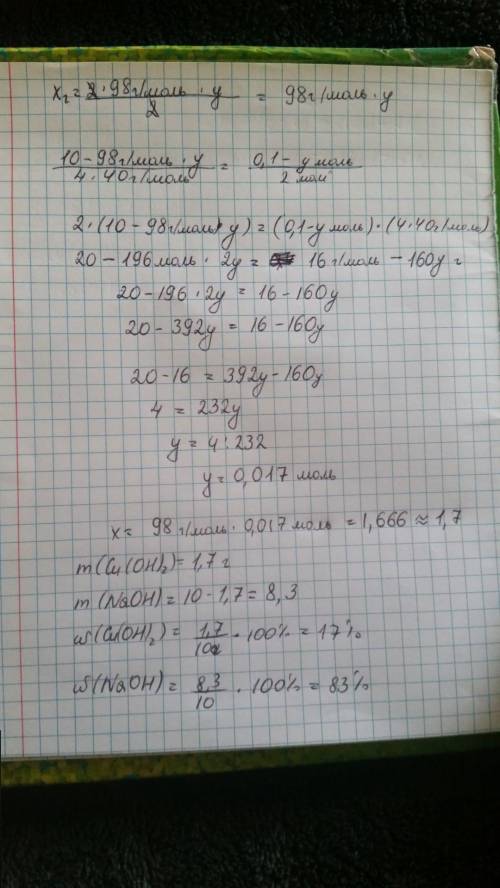 x₂ = 2·98г/моль·y / 2 = 98г/моль·y
10-98г/моль·y / 4·40г/моль = 0,1-y моль / 2 мол
2·(10-98г/моль·y) = (0,1-y моль)·(4·40г/моль)
20-196 моль·2y = 16 г/моль - 160y г
20-196·2y = 16-160y
20-392y = 16-160y
20-16 = 392y-160y
4 = 232y
y = 4:232
y = 0,017 моль
x = 98 г/моль·0,017 моль = 1,666 ≈ 1,7
m(Cu(OH)₂) = 1,7 г
m(NaOH) = 10-1,7 = 8,3
ω(Cu(OH)₂) = 1,7/10 · 100% = 17%
ω(NaOH) = 8,3/10 · 100% = 83%